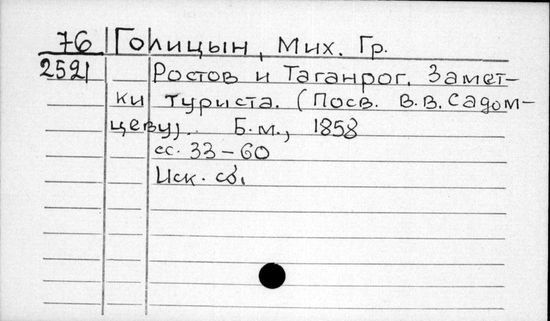 76 Голицын, Мих. Гр.
2521 Ростов и Таганрог. Замет-
ки туриста. (Посв. В.В. Садом-
цеву). Б.м., 1858
сс. 33-60
Иск. сб.